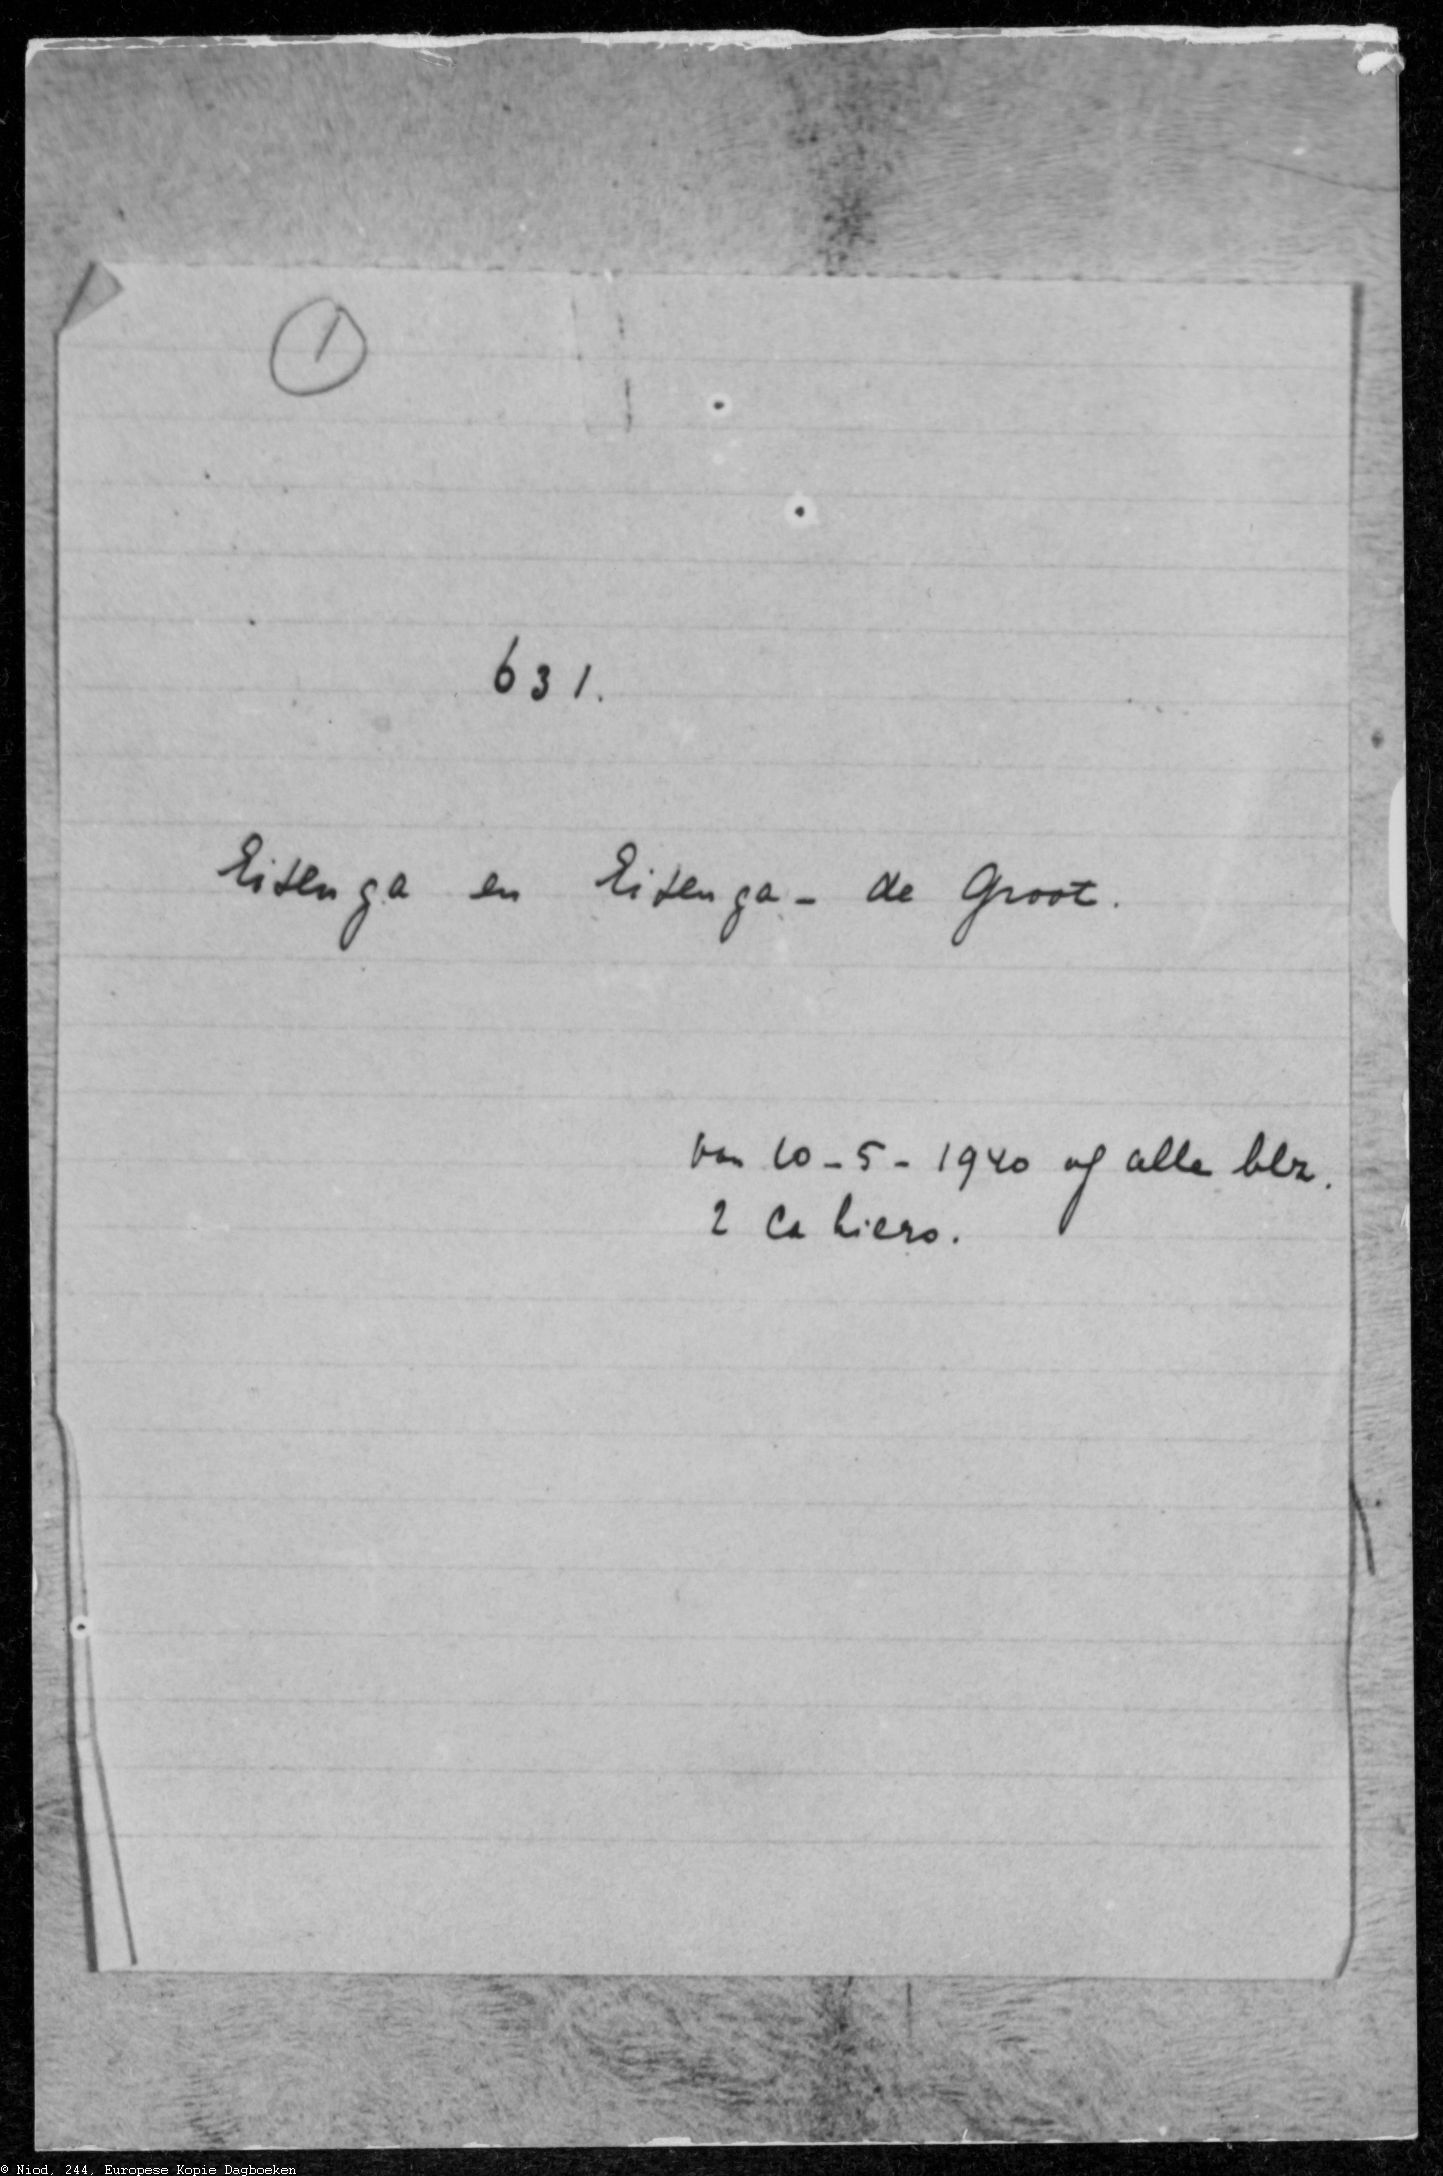 1
631.
Eisenga en Eisenga - de Groot.
van 10-5-1940 af alle blz.
2 Cahiers.
© Niod, 244, Europese Kopie Dagboeken